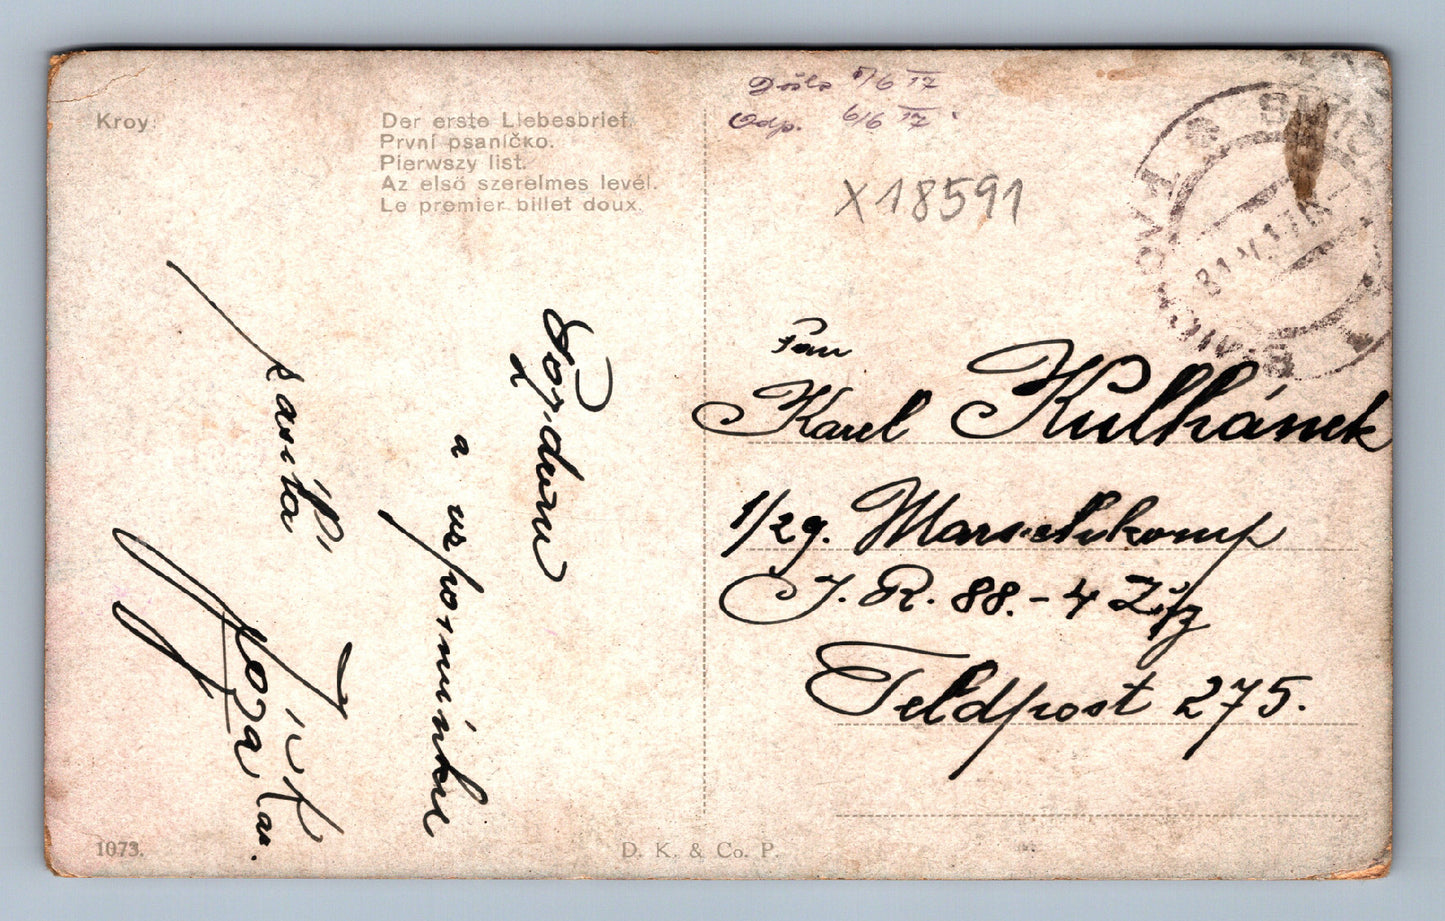 Kroy.
Der erste Liebesbrief.
První psaníčko.
Pierwszy list.
Az első szerelmes levél.
Le premier billet doux.
Došlo 5/6 17
Odp. 6/6 17
X18591
SMÍCHOV 1
31.V.17
Pan
Karel Kulhánek
1/29. Marschkomp
I. R. 88. - 4 Zug
Feldpost 275.
Pozdrav
a vzpomínku
Joža
1073.
D. K. & Co. P.